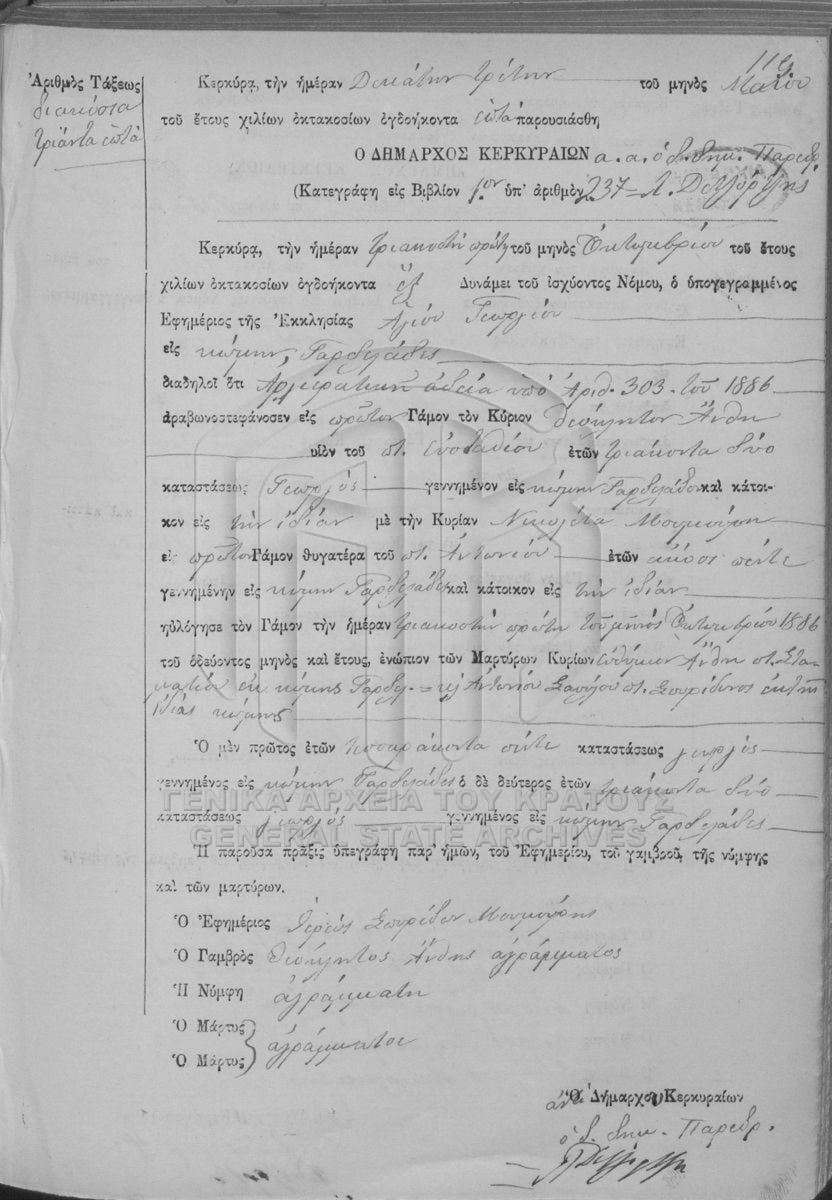 Ἀριθμὸς Τάξεως
διακόσια
τριάντα ἑπτά
Κερκύρᾳ, τὴν ἡμέραν Δεκάτην τρίτην τοῦ μηνὸς Μαΐου
τοῦ ἔτους χιλίων ὀκτακοσίων ὀγδοήκοντα ἑπτὰ παρουσιάσθη
Ο ΔΗΜΑΡΧΟΣ ΚΕΡΚΥΡΑΙΩΝ α. α. ὁ δ. δημ. Παρεδρ.
(Κατεγράφη εἰς Βιβλίον 1ον ὑπ' ἀριθμὸν 237 =
Κερκύρᾳ, τὴν ἡμέραν τριακοστὴ πρώτη τοῦ μηνὸς Ὀκτωβρίου τοῦ ἔτους
χιλίων ὀκτακοσίων ὀγδοήκοντα ἕξ Δυνάμει τοῦ ἰσχύοντος Νόμου, ὁ ὑπογεγραμμένος
Ἐφημέριος τῆς Ἐκκλησίας Ἁγίου Γεωργίου
εἰς κώμην, Γαρδελάδες
διαδηλοῖ ὅτι Ἀρχιερατικὴ ἀδεία ὑπὸ Ἀριθ. 303 - τοῦ 1886
ἀραβωνοστεφάνοσεν εἰς πρῶτον Γάμον τὸν Κύριον Θεόκλητον Ἄνθη
υἱὸν τοῦ ποτ. Εὐσταθίου ἐτῶν τριάκοντα δύο
καταστάσεως Γεωργὸς γεννημένον εἰς κώμην Γαρδελάδες καὶ κάτοι-
κον εἰς τὴν ἰδίαν μὲ τὴν Κυρίαν Νικολέτα Μουμούρη
εἰ πρῶτον Γάμον θυγατέρα τοῦ ποτ. Ἀντωνίου ἐτῶν εἴκοσι πέντε
γεννημένην εἰς κώμην Γαρδελάδες καὶ κάτοικον εἰς τὴν ἰδίαν
ηὐλόγησε τὸν Γάμον τὴν ἡμέραν τριακοστὴν πρώτη τοῦ μηνὸς Ὀκτωβρίου 1886
τοῦ ὁδεύοντος μηνὸς καὶ ἔτους, ἐνώπιον τῶν Μαρτύρων Κυρίων Εὐθύμιου Ἄνθη ποτ. Στα-
ματίου ἐκ κώμης Γαρδελ. = καὶ Ἀντωνίου ποτ. Σπυρίδωνος ἐκ τῆς
ἰδίας κώμης
Ὁ μὲν πρῶτος ἐτῶν τεσσαράκοντα πέντε καταστάσεως γεωργὸς
γεννημένος εἰς κώμην Γαρδελάδες ὁ δὲ δεύτερος ἐτῶν τριάκοντα δύο
καταστάσεως γεωργὸς γεννημένος εἰς κώμην Γαρδελάδες
ΓΕΝΙΚΑ ΑΡΧΕΙΑ ΤΟΥ ΚΡΑΤΟΥΣ
GENERAL STATE ARCHIVES
Ἡ παροῦσα πρᾶξις ὑπεγράφη παρ' ἡμῶν, τοῦ Ἐφημερίου, τοῦ γαμβροῦ, τῆς νύμφης
καὶ τῶν μαρτύρων.
Ὁ Ἐφημέριος Ἱερεὺς Σπυρίδων Μουμούρης
Ὁ Γαμβρὸς Θεόκλητος Ἄνθης ἀγράμματος
Ἡ Νύμφη ἀγράμματη
Ὁ Μάρτυς
ἀγράμματοι
Ὁ Μάρτυς
Ὁ Δήμαρχος Κερκυραίων
ὁ δ. δημ. Παρεδρ.